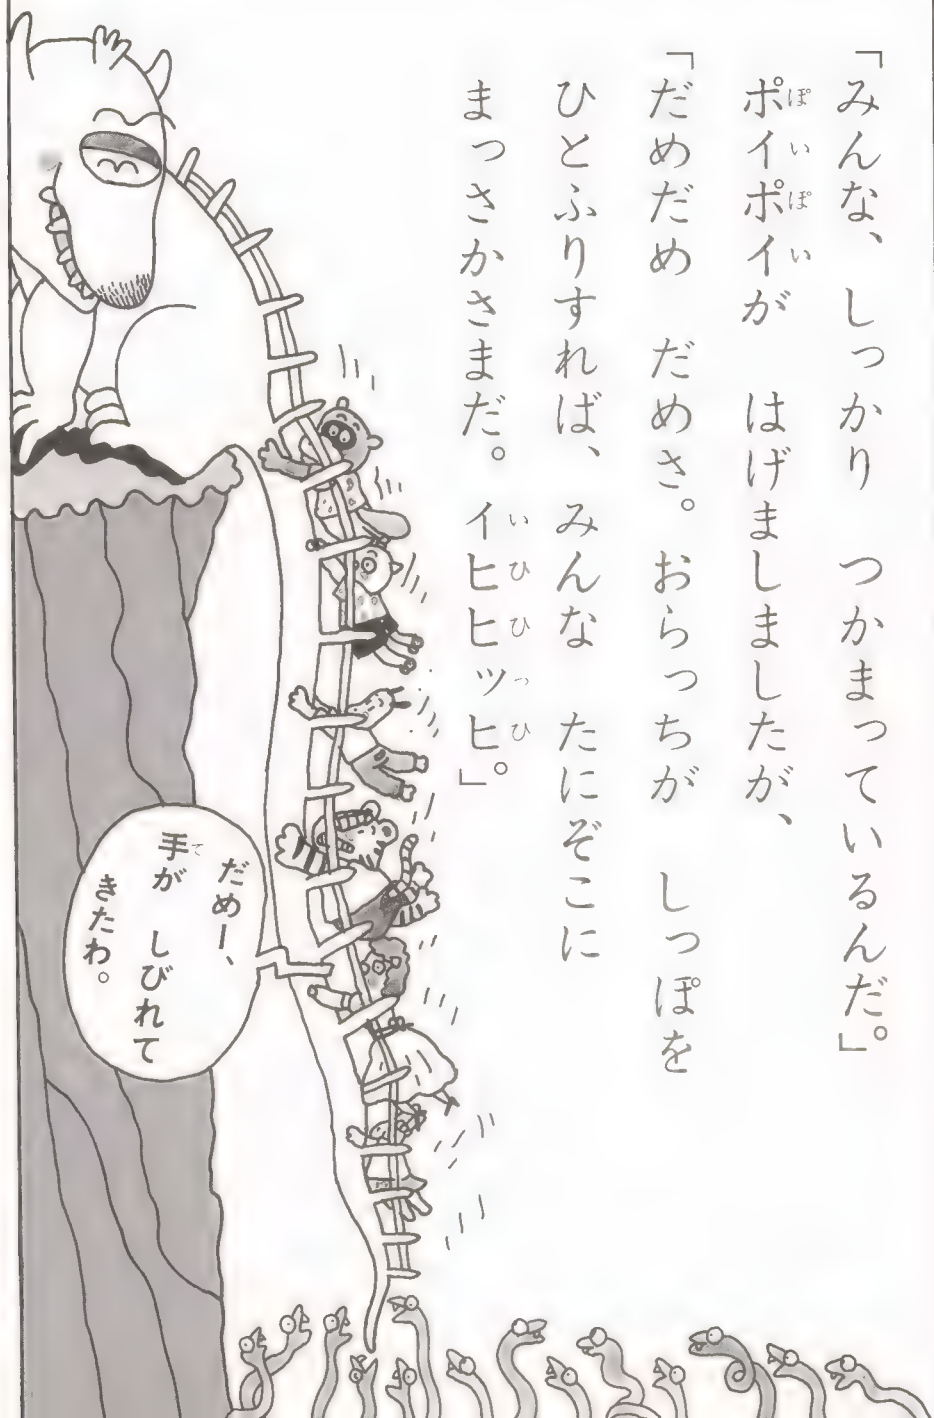 「みんな、しっかり　つかまっているんだ。」
ポイポイが　はげましましたが、
「だめだめ　だめさ。おらっちが　しっぽを
ひとふりすれば、みんな　たにぞこに
まっさかさまだ。イヒヒッヒ。」
だめー、
手が　しびれて
きたわ。